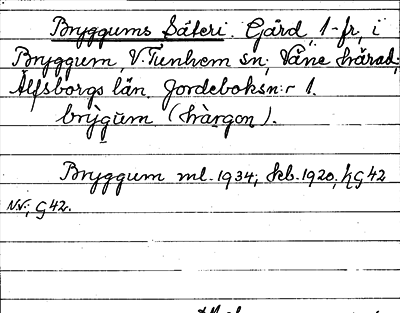 Bryggums Säteri. Gård, 1-fr, i
Bryggum, V. Tunhem sn; Väne härad;
Älfsborgs län. Jordeboksn:r 1.
brỳgum (hàrgon).
Bryggum ml. 1934; seb. 1920; hG42
N.v.; G42.